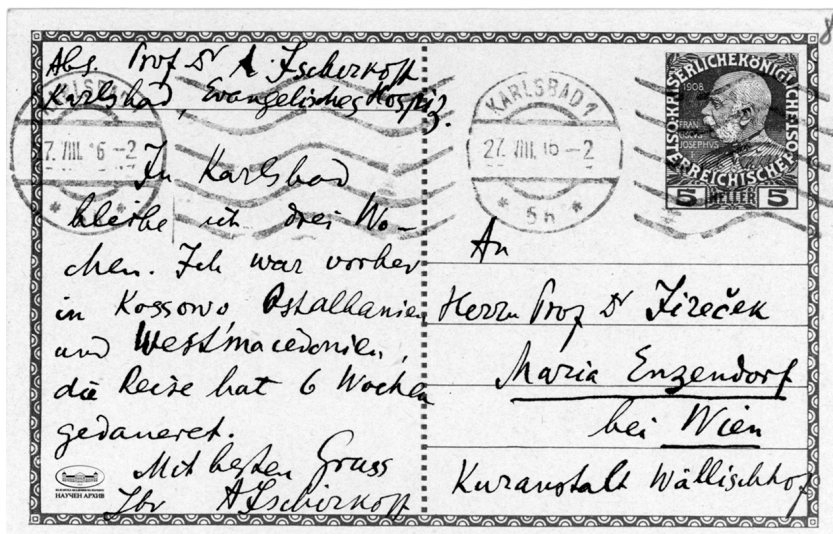 Abs. Prof Dr A. Ischirkoff
Karlsbad, Evangelisches Hospiz.
In Karlsbad
bleibe ich drei Wo-
chen. Ich war vorher
in Kossowo Ostalbanien
und Westmacedonien,
die Reise hat 6 Wochen
gedaueret.
Mit besten Gruss
Ihr AIschirkoff
НАУЧЕН АРХИВ
KARLSBAD 1
27. VIII. 16 – 2
* 5h *
1908
5 HELLER 5
An
Herrn Prof Dr Jireček
Maria Enzendorf
bei Wien
Kuranstalt Wällischhof